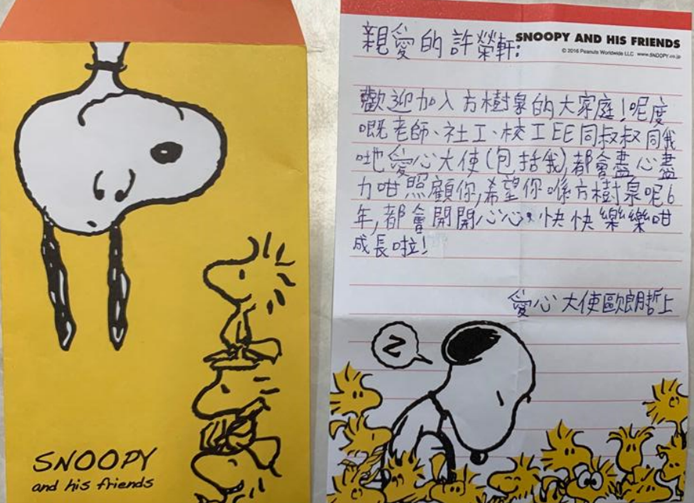 SNOOPY
and his friends
SNOOPY AND HIS FRIENDS
© 2016 Peanuts Worldwide LLC www.SNOOPY.co.jp
親愛的許榮軒:
歡迎加入方樹泉的大家庭!呢度
嘅老師、社工、校工EE同叔叔同我
哋愛心大使(包括我),都會盡心盡
力咁照顧你,希望你喺方樹泉呢6
年,都會開開心心、快快樂樂咁
成長啦!
愛心大使歐朗哲上
Z